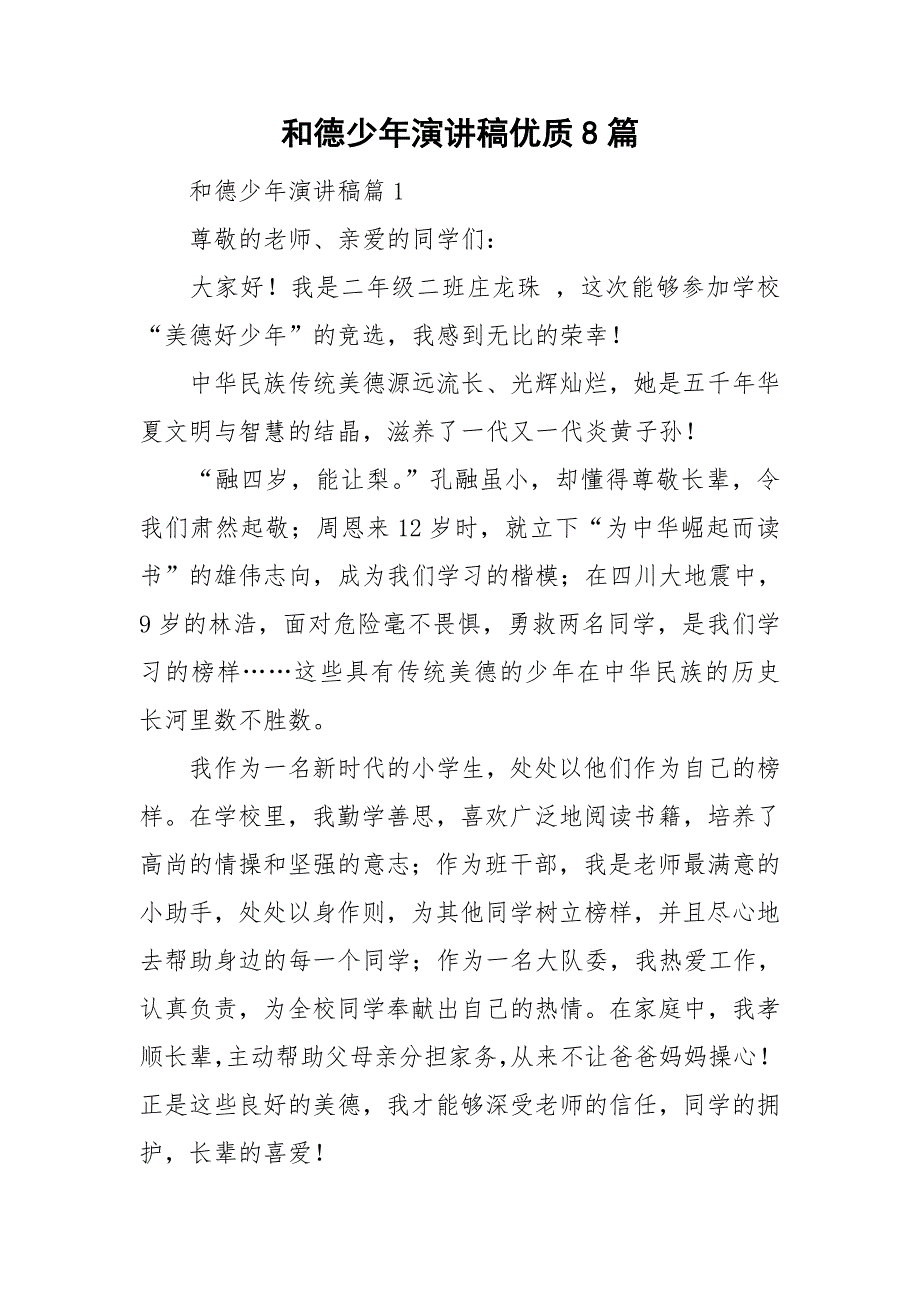 和德少年演讲稿优质8篇
和德少年演讲稿篇1
尊敬的老师、亲爱的同学们：
大家好！我是二年级二班庄龙珠 ，这次能够参加学校
“美德好少年”的竞选，我感到无比的荣幸！
中华民族传统美德源远流长、光辉灿烂，她是五千年华
夏文明与智慧的结晶，滋养了一代又一代炎黄子孙！
“融四岁，能让梨。”孔融虽小，却懂得尊敬长辈，令
我们肃然起敬；周恩来12岁时，就立下“为中华崛起而读
书”的雄伟志向，成为我们学习的楷模；在四川大地震中，
9岁的林浩，面对危险毫不畏惧，勇救两名同学，是我们学
习的榜样……这些具有传统美德的少年在中华民族的历史
长河里数不胜数。
我作为一名新时代的小学生，处处以他们作为自己的榜
样。在学校里，我勤学善思，喜欢广泛地阅读书籍，培养了
高尚的情操和坚强的意志；作为班干部，我是老师最满意的
小助手，处处以身作则，为其他同学树立榜样，并且尽心地
去帮助身边的每一个同学；作为一名大队委，我热爱工作，
认真负责，为全校同学奉献出自己的热情。在家庭中，我孝
顺长辈，主动帮助父母亲分担家务，从来不让爸爸妈妈操心！
正是这些良好的美德，我才能够深受老师的信任，同学的拥
护，长辈的喜爱！